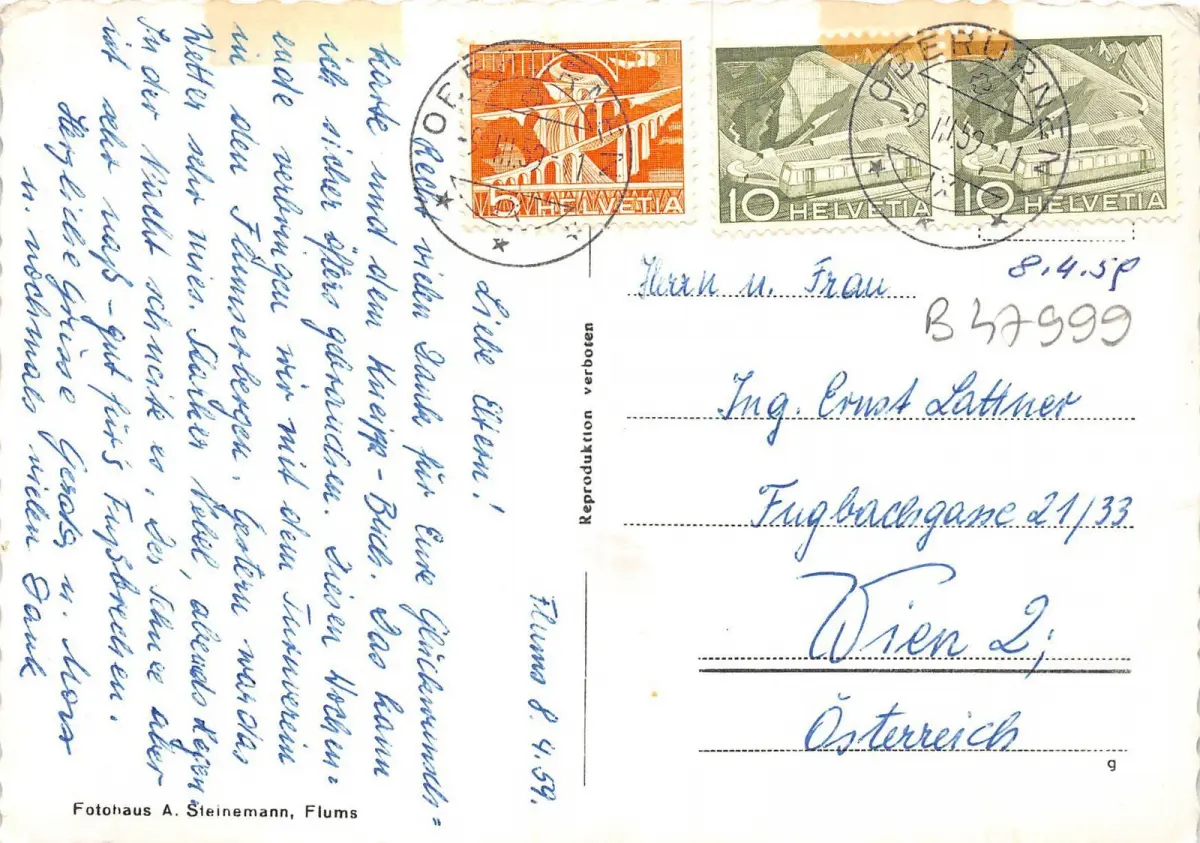 Flums 8.4.59.
Liebe Eltern!
Recht vielen Dank für Eure Glückwunsch=
karte und dem Kneipp-Buch. Das kann
ich sicher öfters gebrauchen. Diesen Wochen=
ende verbringen wir mit dem Turnverein
in den Flumserbergen. Gestern war das
Wetter sehr mies. Starker Nebel, abends Regen.
In der Nacht schneite es. Der Schnee aber
ist sehr naß - gut für's Fußbrechen.
Herzliche Grüsse Gerda u. Max
u. nochmals vielen Dank
Fotohaus A. Steinemann, Flums
Reproduktion verboten
5 HELVETIA
10 HELVETIA
10 HELVETIA
OBERURNEN
OBERURNEN
8.4.59
B 47999
Herrn u. Frau
Ing. Ernst Lattner
Fugbachgasse 21/33
Wien 2,
Österreich
g